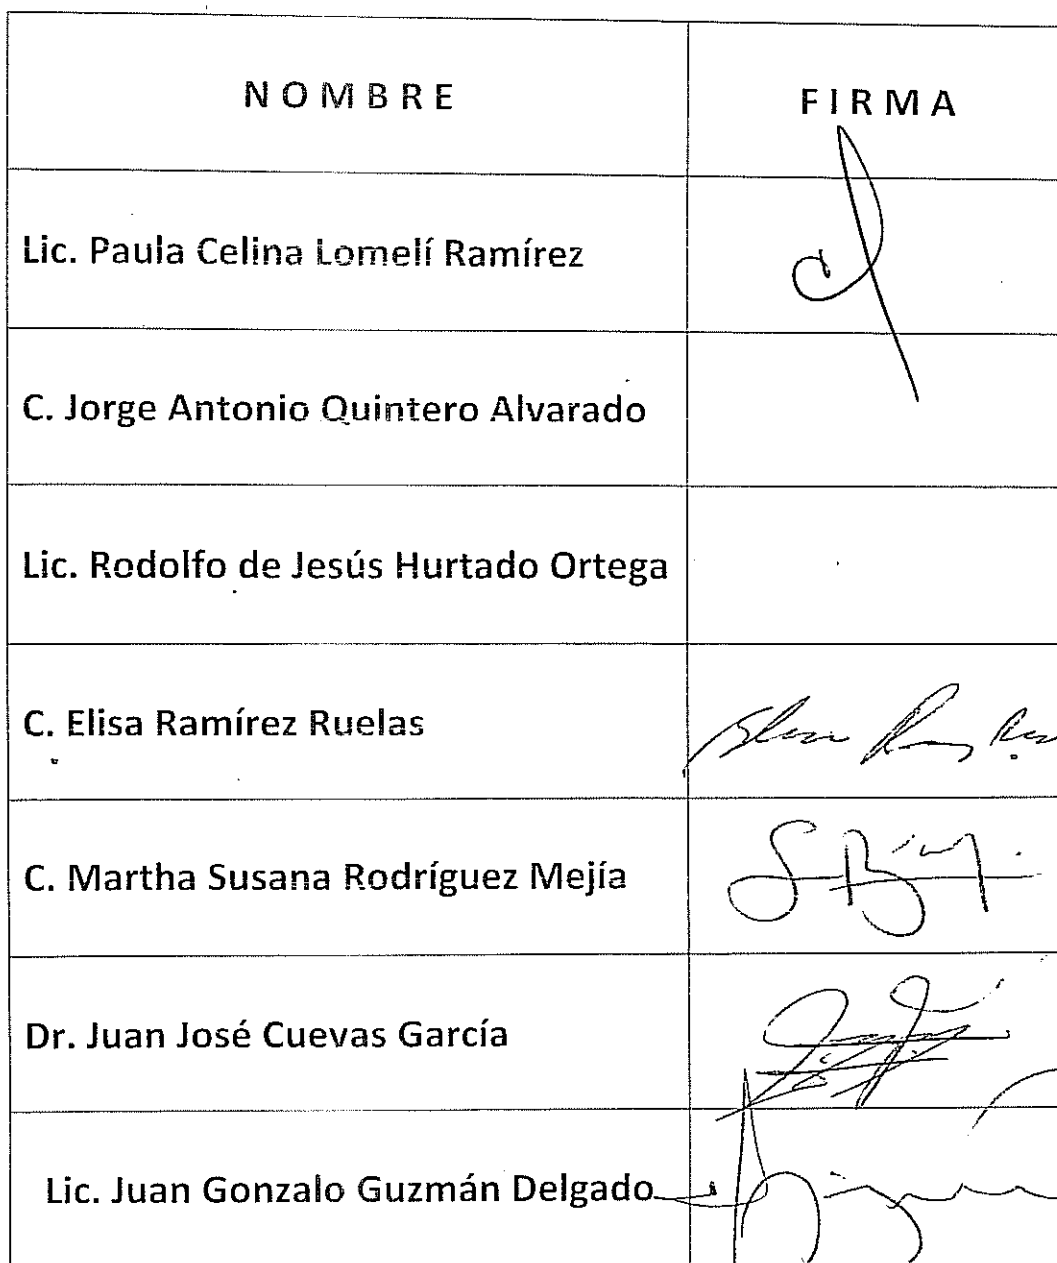 NOMBRE FIRMA
Lic. Paula Celina Lomelí Ramírez
C. Jorge Antonio Quintero Alvarado
Lic. Rodolfo de Jesús Hurtado Ortega
C. Elisa Ramírez Ruelas
C. Martha Susana Rodríguez Mejía
Dr. Juan José Cuevas García
Lic. Juan Gonzalo Guzmán Delgado